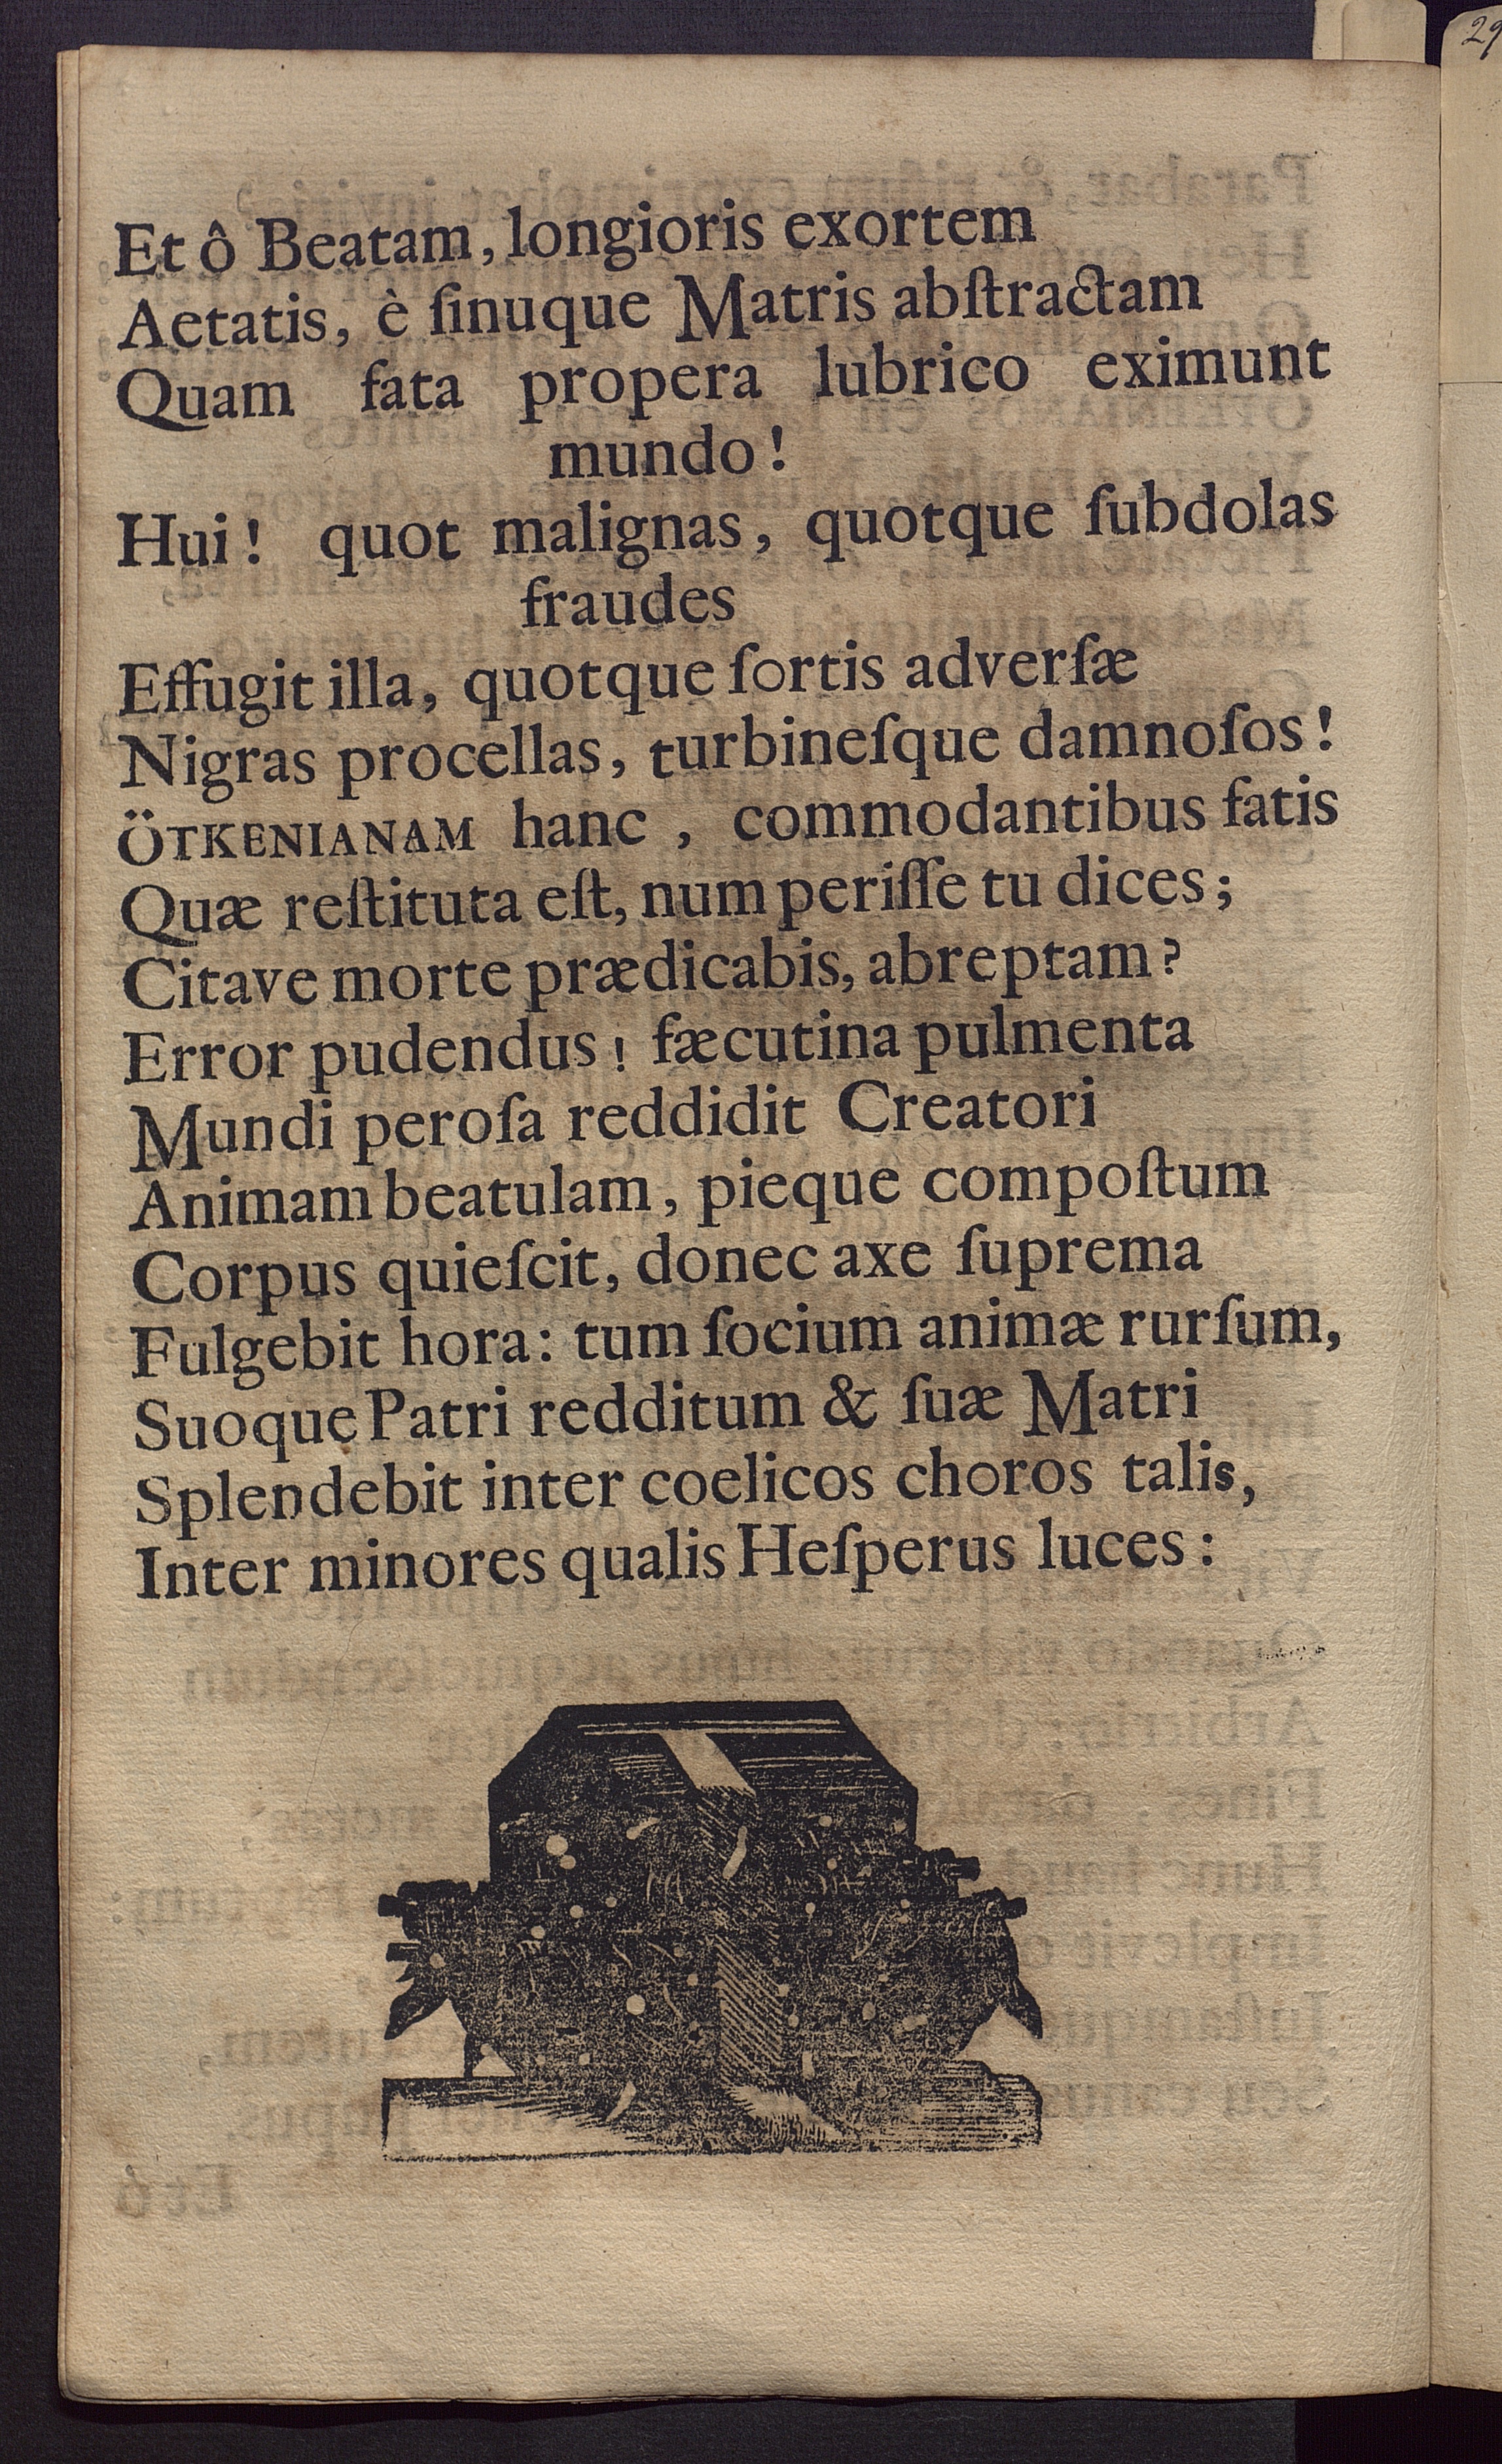 29
Et ô Beatam, longioris exortem
Aetatis, è ſinuque Matris abſtractam
Quam fata propera lubrico eximunt
mundo!
Hui! quot malignas, quotque ſubdolas
fraudes
Effugit illa, quotque ſortis adverſæ
Nigras procellas, turbineſque damnoſos!
ÖTKENIANAM hanc, commodantibus fatis
Quæ reſtituta eſt, num periſſe tu dices;
Citave morte prædicabis, abreptam?
Error pudendus! fæcutina pulmenta
Mundi peroſa reddidit Creatori
Animam beatulam, pieque compoſtum
Corpus quieſcit, donec axe ſuprema
Fulgebit hora: tum ſocium animæ rurſum,
Suoque Patri redditum & ſuæ Matri
Splendebit inter coelicos choros talis,
Inter minores qualis Heſperus luces: